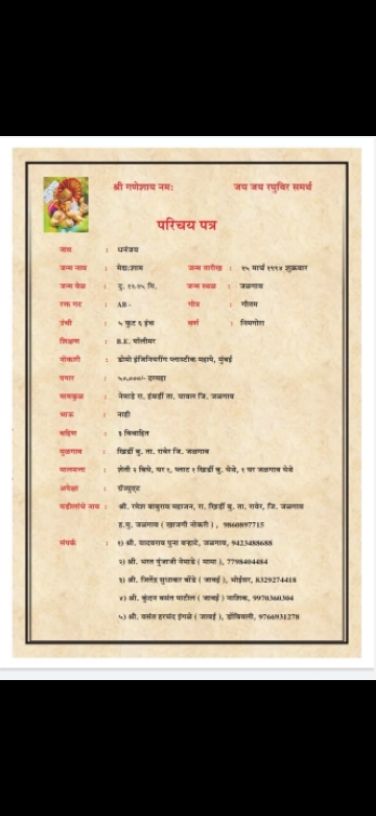 श्री गणेशाय नमः जय जय रघुविर समर्थ
परिचय पत्र
नाव : धनंजय
जन्म नाव : मेघःशाम जन्म तारीख : १५ मार्च १९९४ शुक्रवार
जन्म वेळ : दु. १२.१५ मि. जन्म स्थळ : जळगाव
रक्त गट : AB - गोत्र : गौतम
उंची : ५ फुट ६ इंच वर्ण : निमगोरा
शिक्षण : B.E. पॉलीमर
नोकरी : डोमो इंजिनियरींग प्लास्टीक महापे, मुंबई
पगार : ५०,०००/- दरमहा
मामकुळ : नेमाडे रा. ता. यावल जि. जळगाव
भाऊ : नाही
बहिण : ३ विवाहित
मुळगाव : खिर्डी बु. ता. रावेर जि. जळगाव
मालमत्ता : शेती ३ बिघे, घर १, प्लाट १ खिर्डी बु. येथे, १ घर जळगाव येथे
अपेक्षा : ग्रॅज्युएट
वडीलांचे नाव : श्री. रमेश बाबुराव महाजन, रा. खिर्डी बु. ता. रावेर, जि. जळगाव
ह.मु. जळगाव ( खाजगी नोकरी ) , 9860897715
संपर्क : १) श्री. यादवराव पुना बऱ्हाटे, जळगाव, 9423488688
२) श्री. भरत पुंजाजी नेमाडे ( मामा ), 7798404484
३) श्री. जितेंद्र सुधाकर बोंडे ( जावई ), भोईसर, 8329274418
४) श्री. कुंदन वसंत पाटील ( जावई ) नाशिक, 9970360304
५) श्री. वसंत हरचंद इंगळे ( जावई ), डोंबिवली, 9766931278